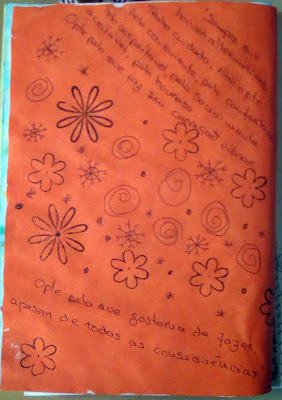 "Sempre que
houver alternativas
tenha cuidado. Não opte
pelo conveniente, pelo confortável
pelo respeitável, pelo socialmente
aceitável, pelo honroso.
Opte pelo que faz seu
coração vibrar.
Opte pelo que gostaria de fazer,
apesar de todas as consequências"